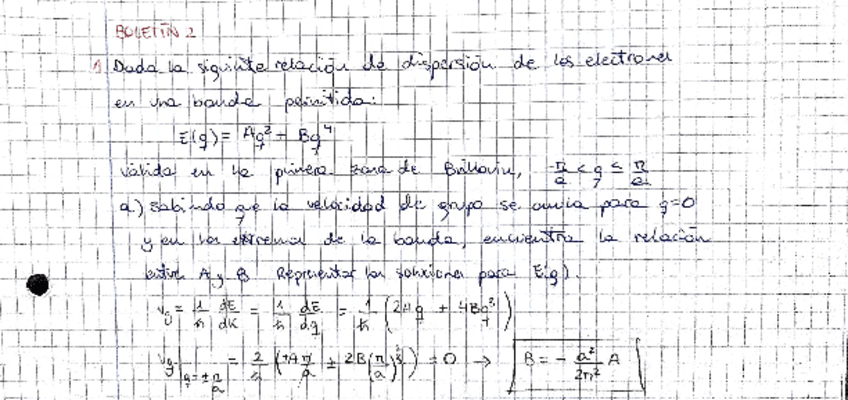 BOLETÍN 2
1 Dada la siguiente relación de dispersión de los electrones
en una banda permitida:
E(q) = Aq² + Bq⁴
válida en la primera zona de Brillouin, -π/a < q ≤ π/a
a.) Sabiendo que la velocidad de grupo se anula para q=0
y en los extremos de la banda, encuentra la relación
entre A y B. Representar las soluciones para E(q).
v_g = 1/ħ dE/dk = 1/ħ dE/dq = 1/ħ (2Aq + 4Bq³)
v_g|q=±π/a = 2/ħ (±A π/a ± 2B(π/a)³) = 0 → B = - a²/2π² A